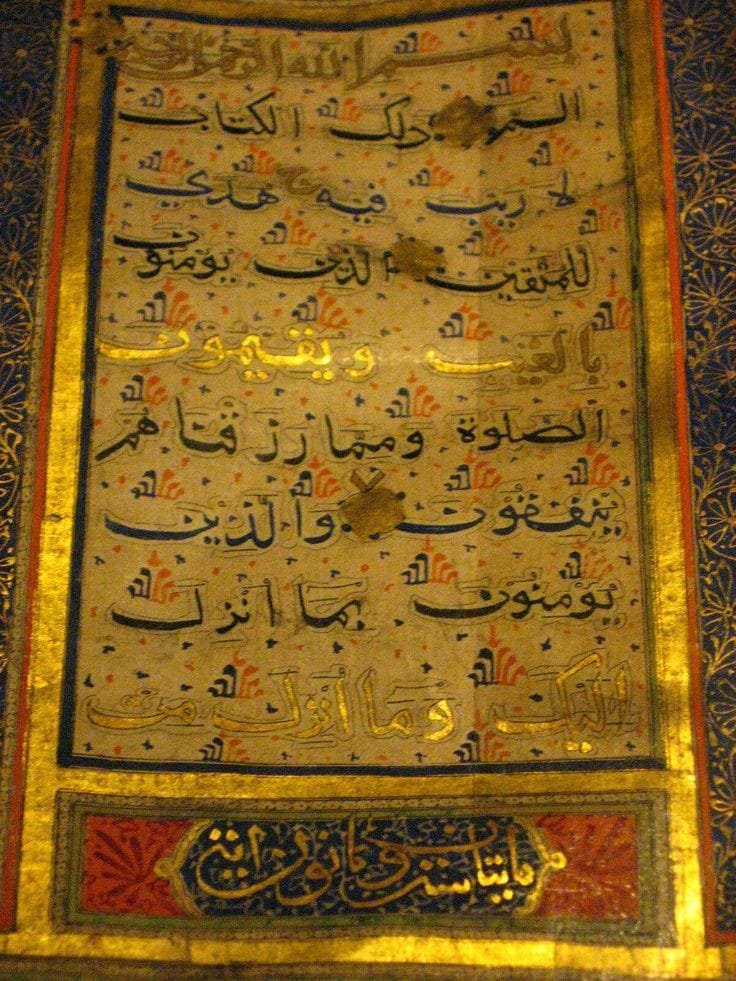 بسم الله الرحمن الرحيم
الم ذلك الكتاب
لا ريب فيه هدي
للمتقين الذين يومنون
بالغيب ويقيمون
الصلوة ومما رزقناهم
ينفقون والذين
يومنون بما انزل
اليك وما انزل من